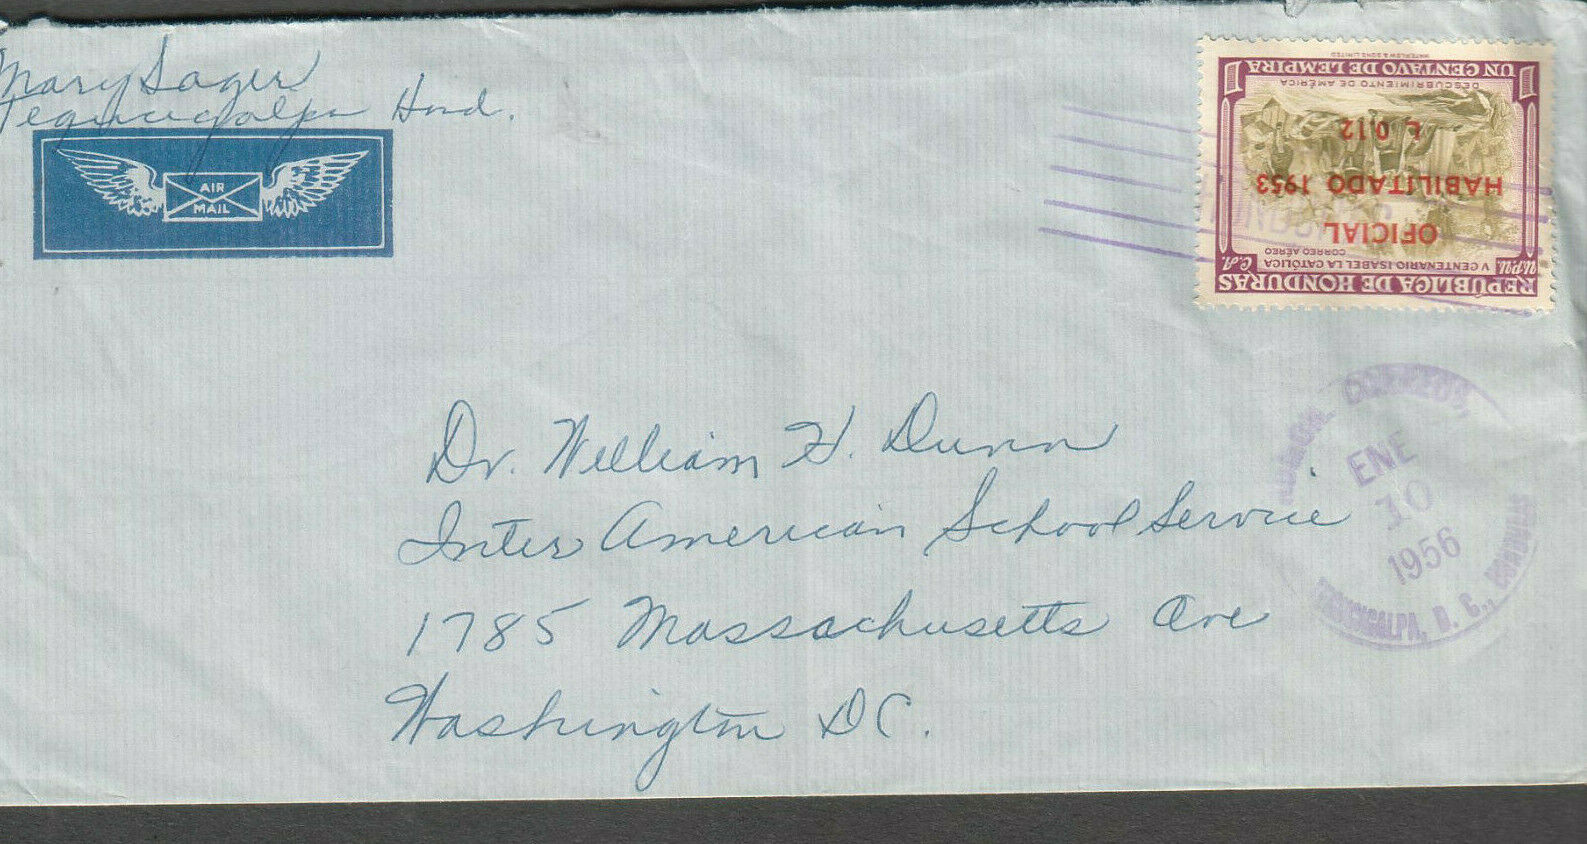 Mary Sager
Tegucigalpa Hond.
AIR
MAIL
REPÚBLICA DE HONDURAS
U.P.U. V CENTENARIO ISABEL LA CATÓLICA C.A.
CORREO AÉREO
OFICIAL
HABILITADO 1953
L 0.12
DESCUBRIMIENTO DE AMÉRICA
1 UN CENTAVO DE LEMPIRA 1
WATERLOW & SONS LIMITED
Dr. William H. Dunn
Inter American School Service
1785 Massachusetts Ave
Washington DC.
CORREOS,
ENE
10
1956
TEGUCIGALPA, D. C., HONDURAS